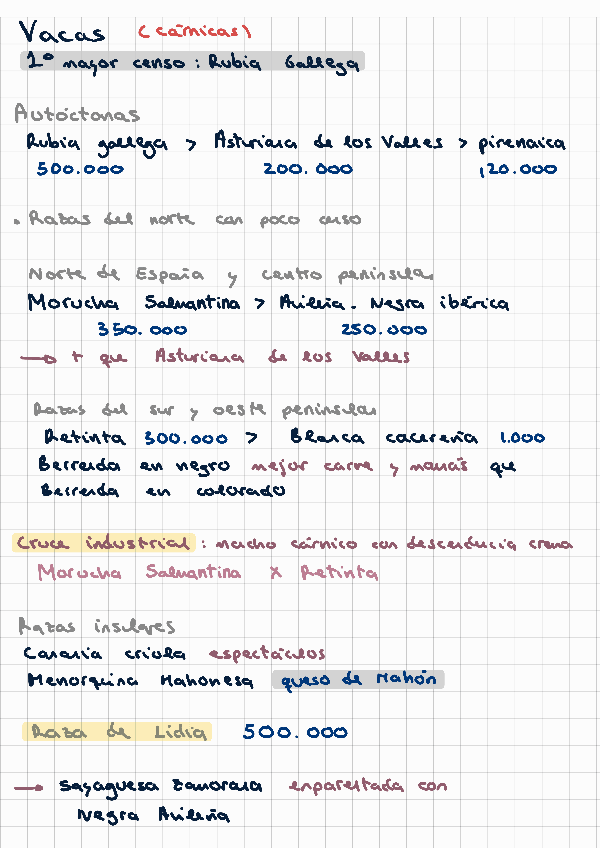 Vacas (cárnicas)
1º mayor censo : Rubia Gallega
Autóctonas
Rubia gallega > Asturiana de los Valles > pirenaica
500.000 200.000 120.000
• Razas del norte con poco censo
Norte de España y centro peninsular
Morucha Salmantina > Avileña. Negra ibérica
350.000 250.000
→ + que Asturiana de los Valles
Razas del sur y oeste peninsular
Retinta 300.000 > Blanca cacereña 1.000
Berrenda en negro mejor carne y mamás que
Berrenda en colorado
Cruce industrial : macho cárnico con descendencia crema
Morucha Salmantina x Retinta
Razas insulares
Canaria criolla espectáculos
Menorquina Mahonesa queso de Mahón
Raza de Lidia 500.000
→ Sayaguesa Zamorana emparentada con
Negra Avileña